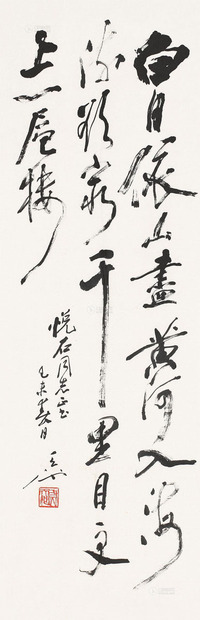 白日依山盡黃河入海
流欲窮千里目更
上一層樓
悦石同志正
己未月